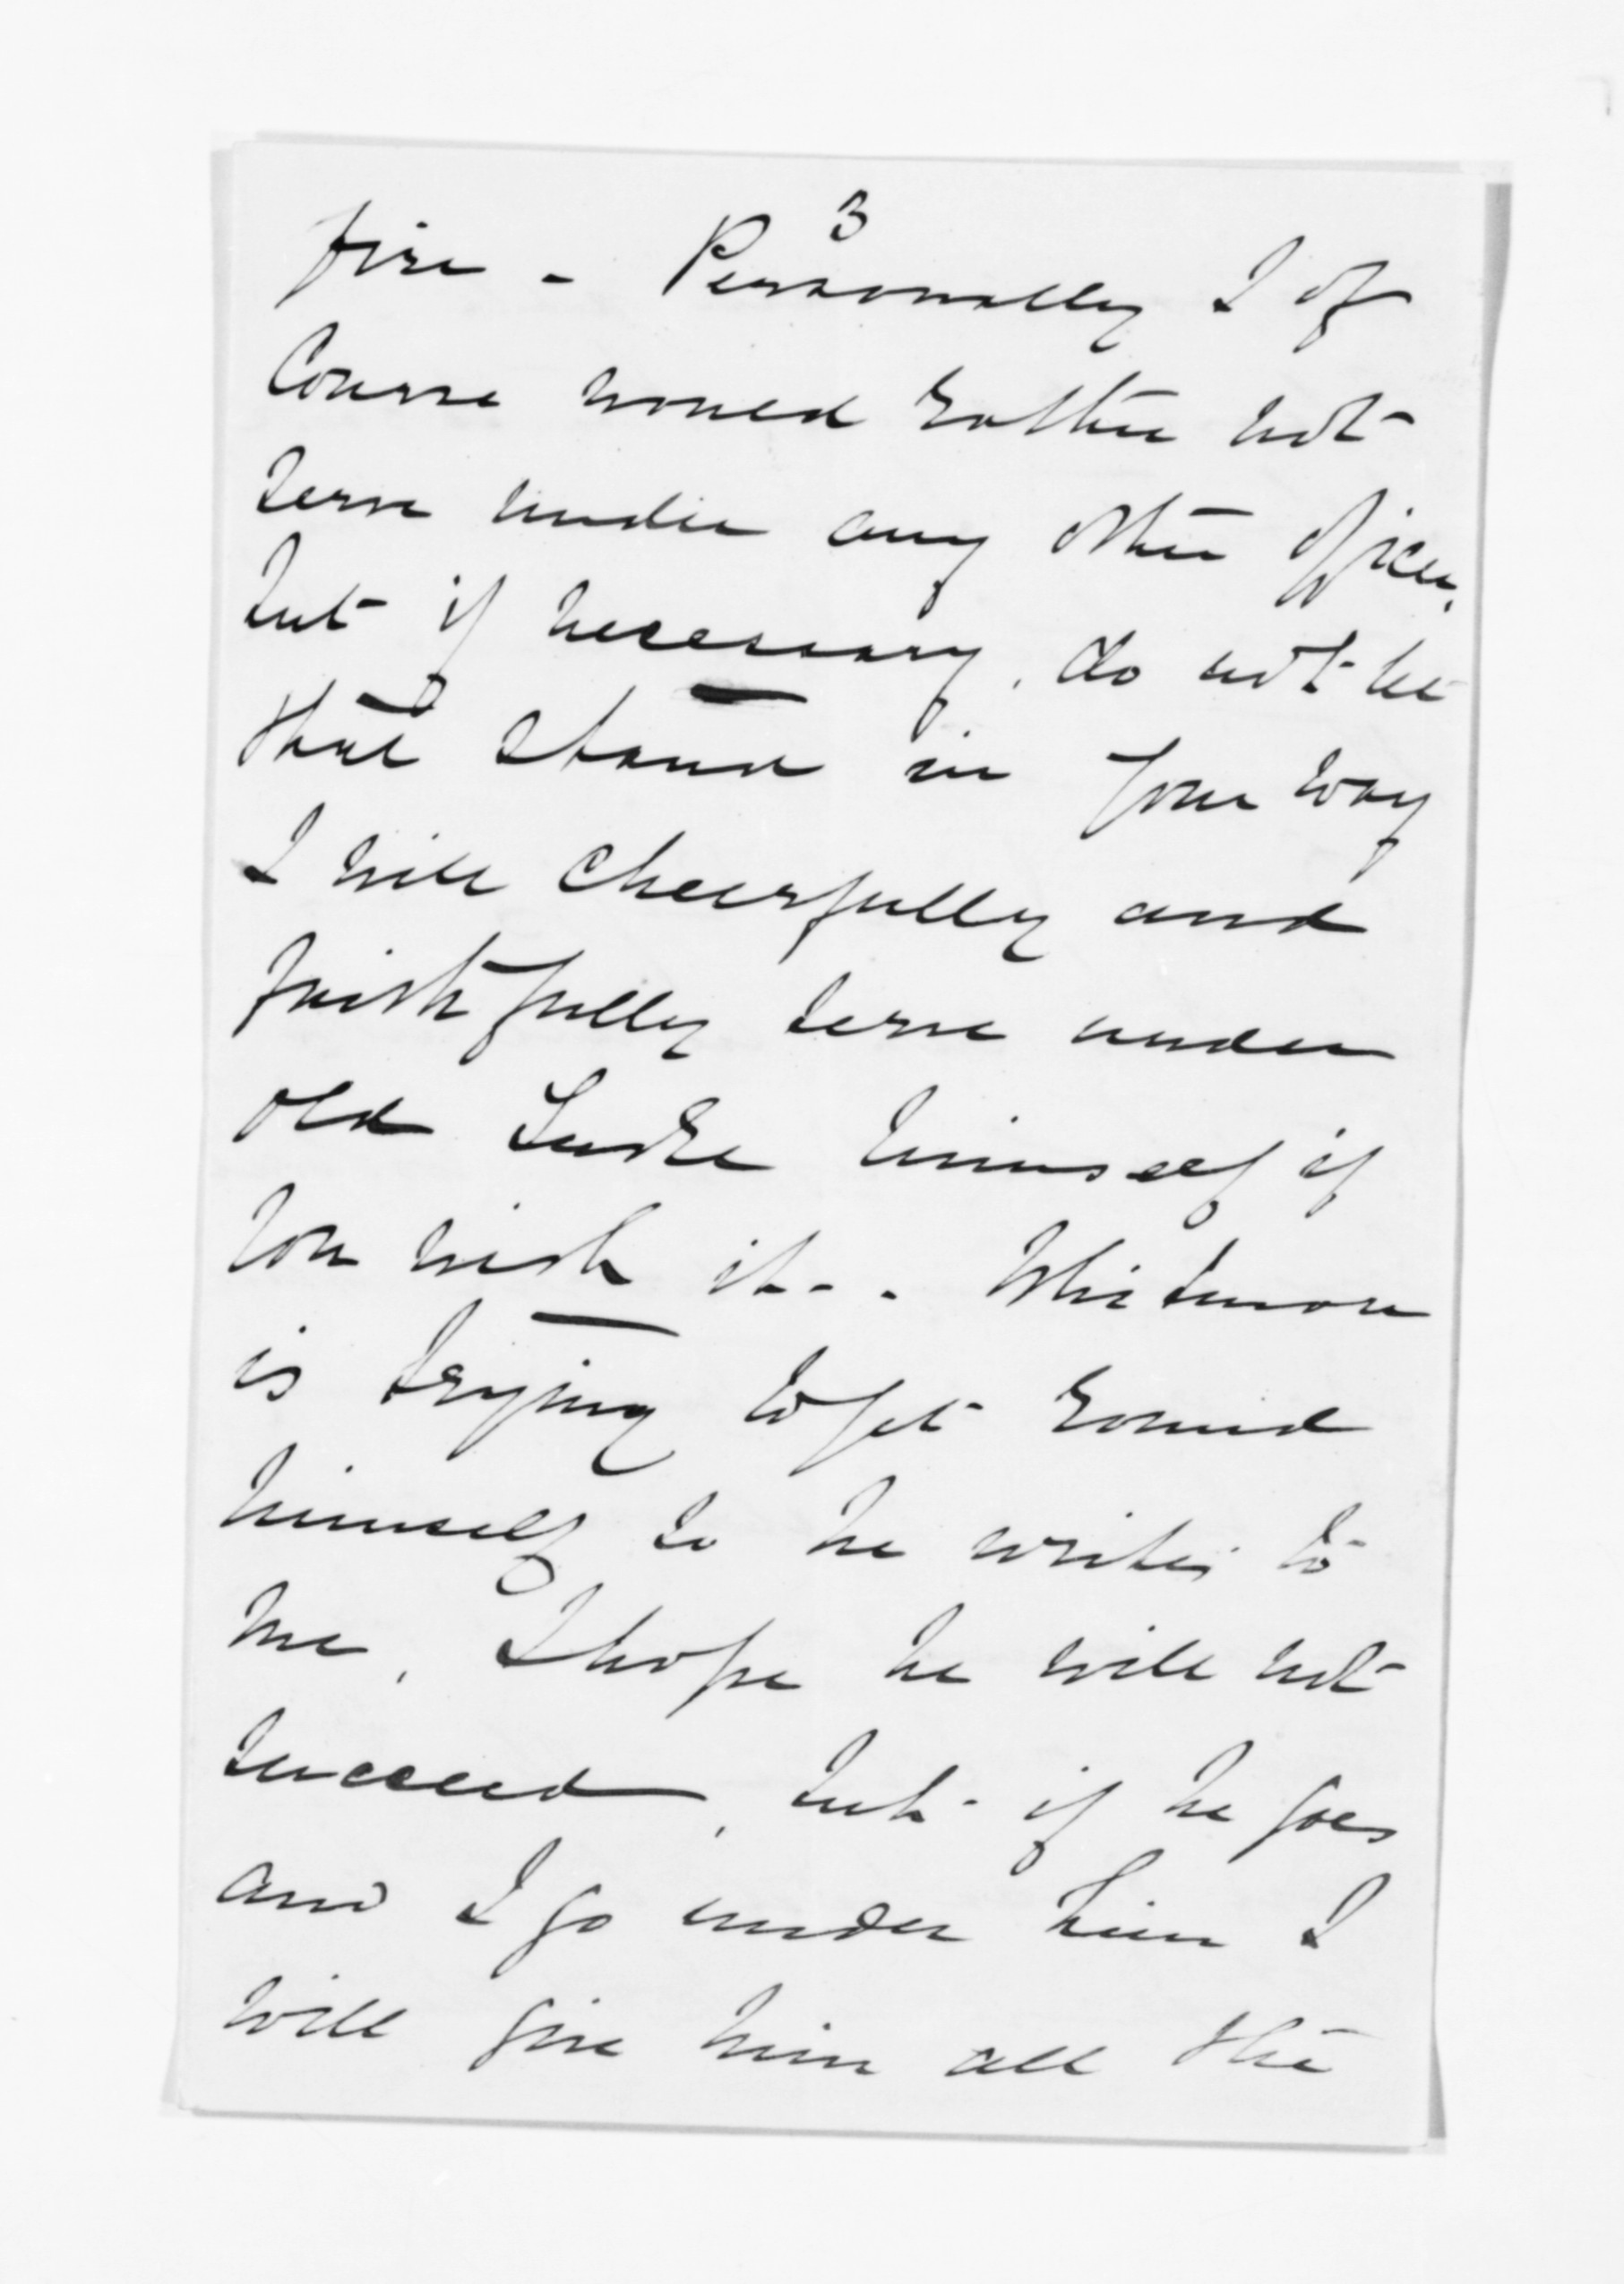 3
fire - Personally I of
Course would rather not
serve under any other Officer,
but if necessary, do not let
that stand in your way
I will cheerfully and
faithfully serve under
old himself if
you wish it - . Whitmore
is trying to get round
himself so he writes to
me, I hope he will not
succeed, but if he goes
and I go under him I
will give him all the